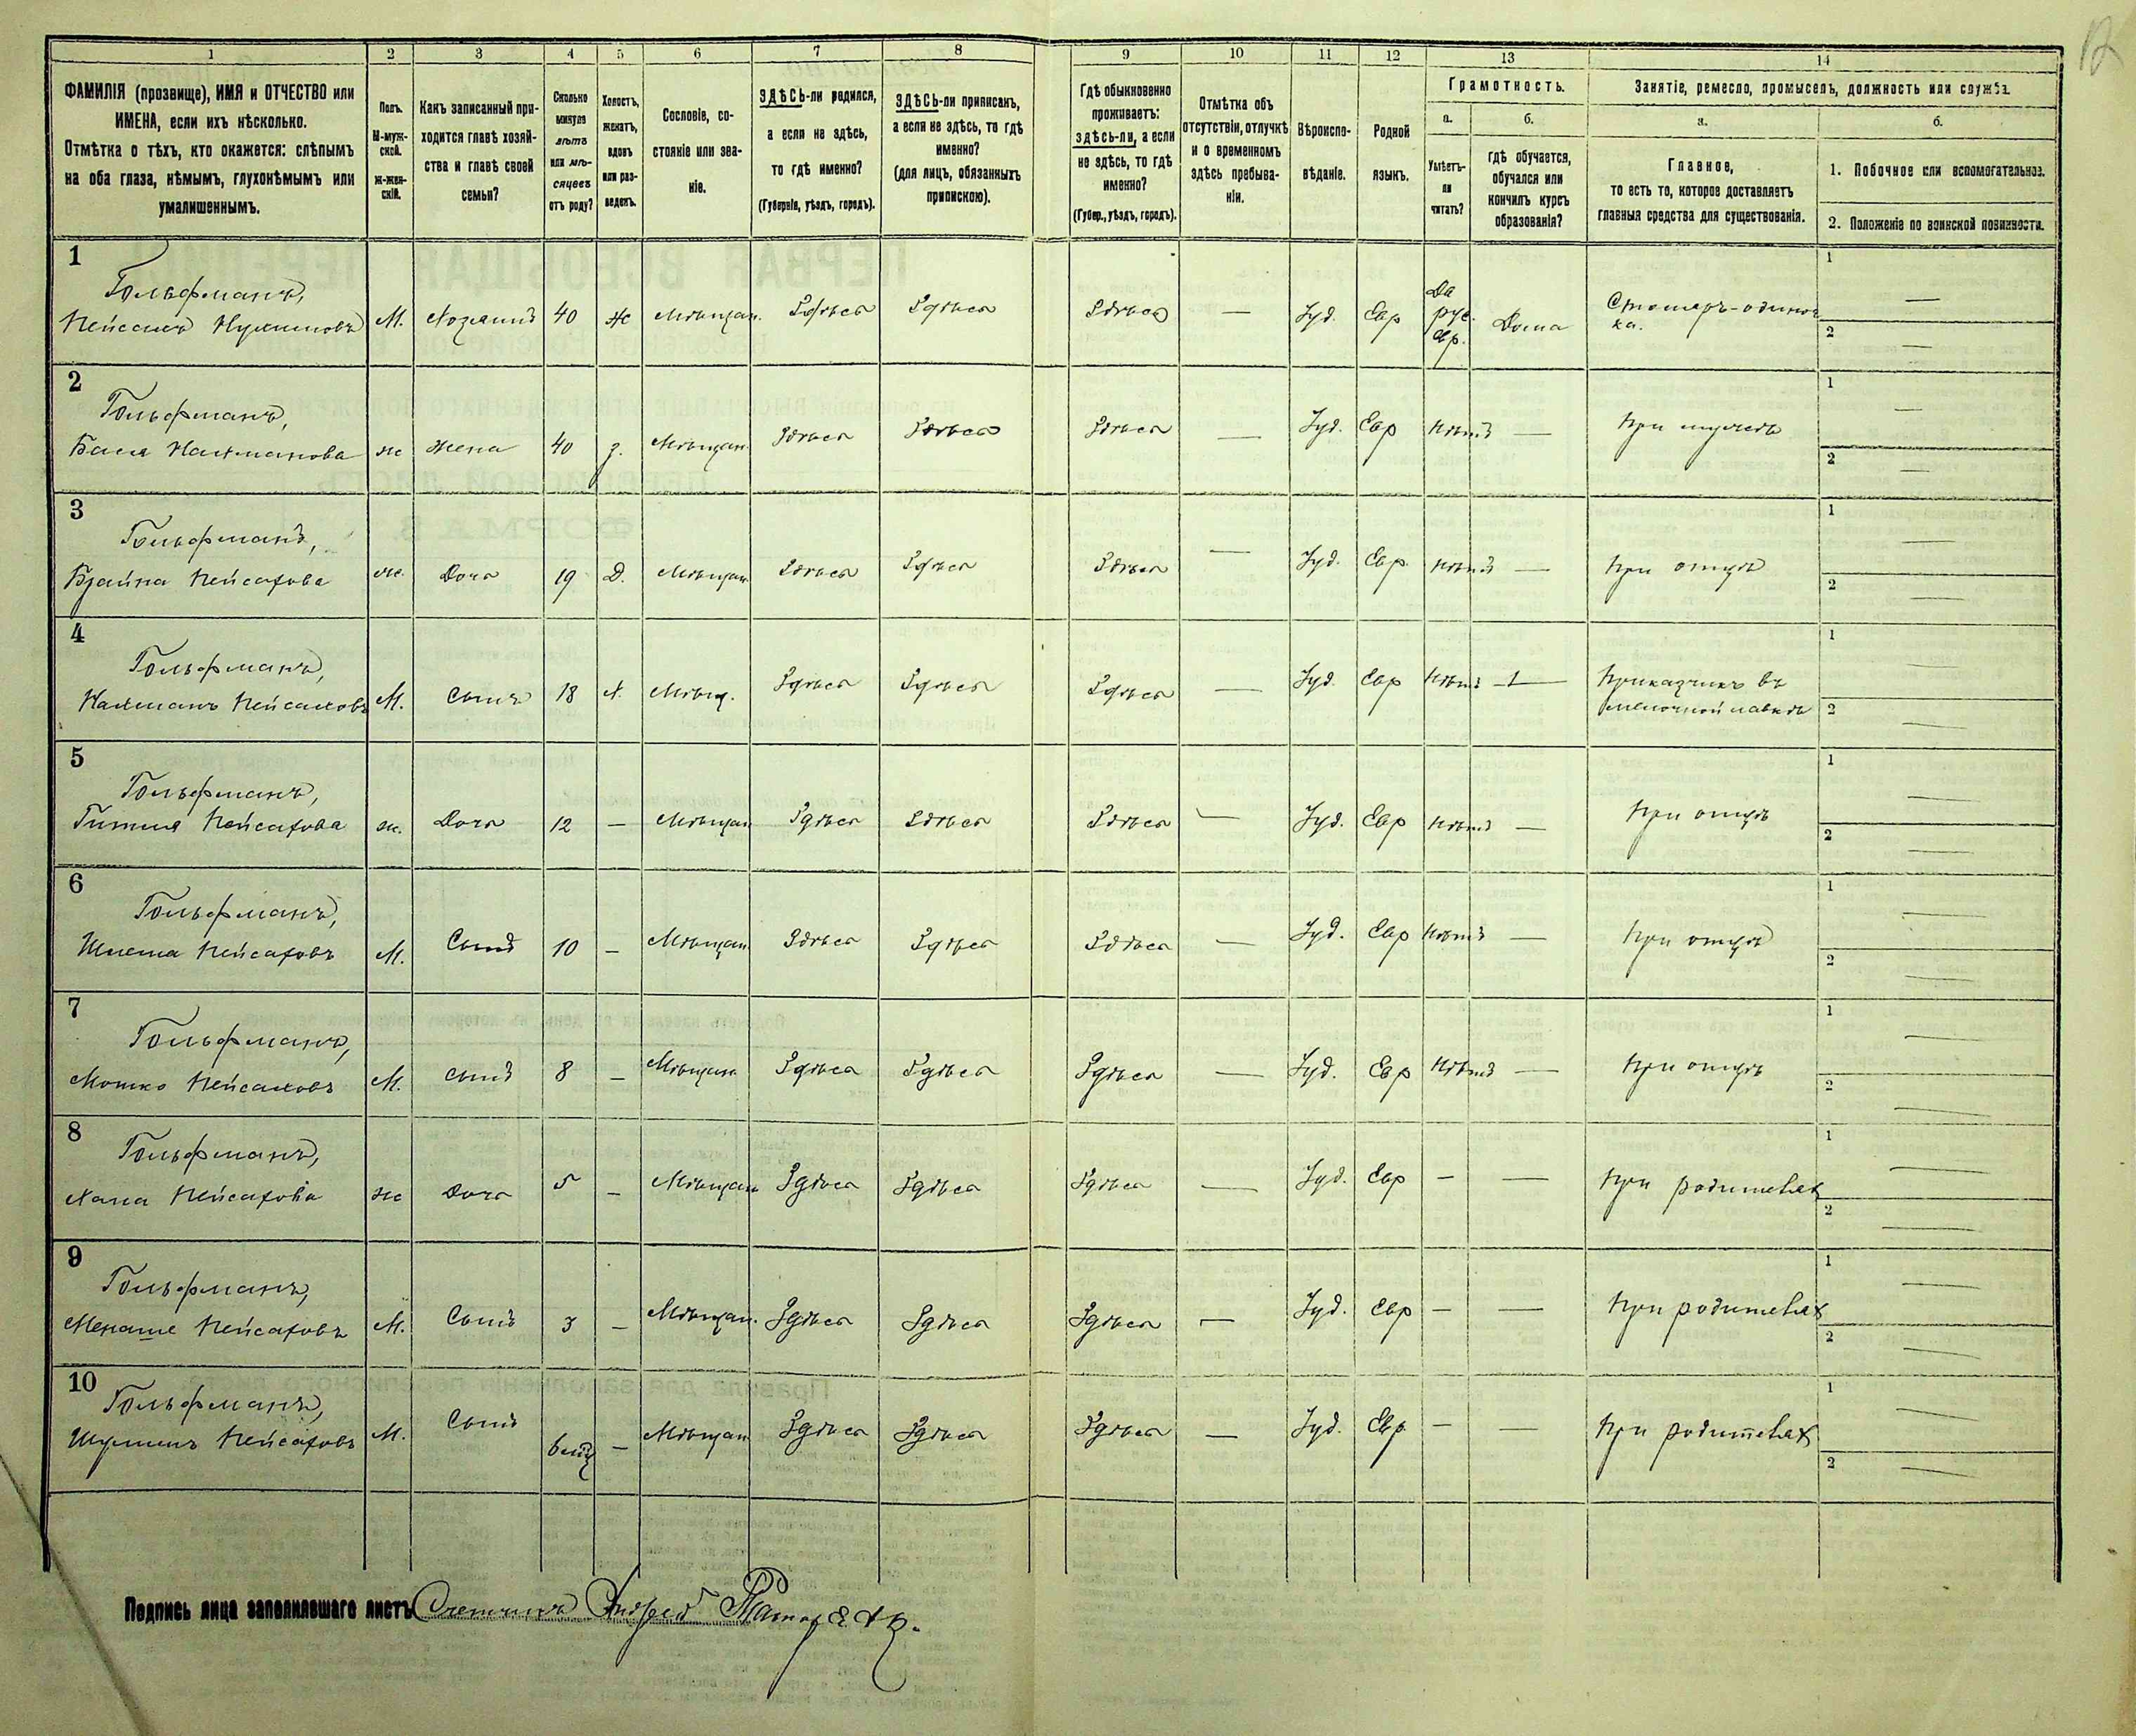 1 2 3 4 5 6 7 8 9 10 11 12 13 14
ФАМИЛІЯ (прозвище), ИМЯ и ОТЧЕСТВО или
ИМЕНА, если ихъ нѣсколько.
Отмѣтка о тѣхъ, кто окажется: слѣпымъ
на оба глаза, нѣмымъ, глухонѣмымъ или
умалишеннымъ.
Полъ.
М-муж-
ской.
Ж-жен-
скій.
Какъ записанный при-
ходится главѣ хозяй-
ства и главѣ своей
семьи?
Сколько
минуло
лѣтъ
или мѣ-
сяцевъ
отъ роду?
Холостъ,
женатъ,
вдовъ
или раз-
веденъ.
Сословіе, со-
стояніе или зва-
ніе.
ЗДѢСЬ-ли родился,
а если не здѣсь,
то гдѣ именно?
(Губернія, уѣздъ, городъ).
ЗДѢСЬ-ли приписанъ,
а если не здѣсь, то гдѣ
именно?
(для лицъ, обязанныхъ
припискою).
Гдѣ обыкновенно
проживаетъ:
здѣсь-ли, а если
не здѣсь, то гдѣ
именно?
(Губер., уѣздъ, городъ).
Отмѣтка объ
отсутствіи, отлучкѣ
и о временномъ
здѣсь пребыва-
ніи.
Вѣроиспо-
вѣданіе.
Родной
языкъ.
Грамотность.
а.
Умѣетъ-
ли
читать?
б.
гдѣ обучается,
обучался или
кончилъ курсъ
образованія?
Занятіе, ремесло, промыселъ, должность или служба.
а.
Главное,
то есть то, которое доставляетъ
главныя средства для существованія.
б.
1. Побочное или вспомогательное.
2. Положеніе по воинской повинности.
1
Гольфманъ,
Пейсахъ М. Хозяинъ 40 ж Мѣщан. Здѣсь Здѣсь Здѣсь — Іуд. Евр Да рус. евр. Дома Столяръ-одиноч
ка.
1 —
2 —
2
Гольфманъ,
Бася Нахманова ж Жена 40 з. Мѣщан. Здѣсь Здѣсь Здѣсь — Іуд. Евр Нѣтъ — При мужѣ
1 —
2 —
3
Гольфманъ,
Брайна Пейсахова ж. Дочь 19 Д. Мѣщан. Здѣсь Здѣсь Здѣсь — Іуд. Евр. Нѣтъ — При отцѣ
1 —
2 —
4
Гольфманъ,
Нахманъ Пейсаховъ М. Сынъ 18 х. Мѣщ. Здѣсь Здѣсь Здѣсь — Іуд. Евр Нѣтъ — Приказчикъ въ
мелочной лавкѣ
1 —
2 —
5
Гольфманъ,
Гитля Пейсахова ж. Дочь 12 — Мѣщан Здѣсь Здѣсь Здѣсь — Іуд. Евр Нѣтъ — При отцѣ
1 —
2 —
6
Гольфманъ,
Шлема Пейсаховъ М. Сынъ 10 — Мѣщан Здѣсь Здѣсь Здѣсь — Іуд. Евр Нѣтъ — При отцѣ
1 —
2 —
7
Гольфманъ,
Мошко Пейсаховъ М. Сынъ 8 — Мѣщан Здѣсь Здѣсь Здѣсь — Іуд. Евр Нѣтъ — При отцѣ
1 —
2 —
8
Гольфманъ,
Хана Пейсахова ж Дочь 5 — Мѣщан Здѣсь Здѣсь Здѣсь — Іуд. Евр — — При родителях
1 —
2 —
9
Гольфманъ,
Менаше Пейсаховъ М. Сынъ 3 — Мѣщан. Здѣсь Здѣсь Здѣсь — Іуд. Евр — — При родителях
1 —
2 —
10
Гольфманъ,
Пейсаховъ М. Сынъ — Мѣщан Здѣсь Здѣсь Здѣсь — Іуд. Евр. — — При родителях
1 —
2 —
Подпись лица заполнявшаго листъ Счетчикъ Андрей